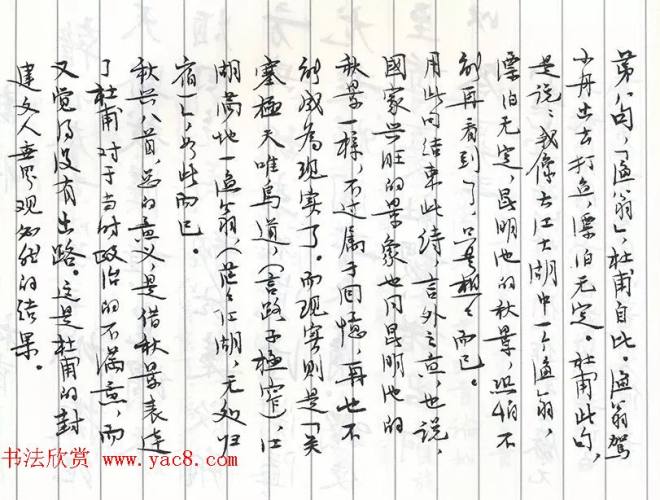 第八句，「渔翁」，杜甫自比。渔翁驾
小舟出去打鱼，漂泊无定。杜甫此句，
是说：我像在江大湖中一个渔翁，
漂泊无定，昆明池的秋景，恐怕不
能再看到了，只是想々而已。
用此句结束此诗，言外之意，也说，
國家兴旺的景象也同昆明池的
秋景一样，不过属于回憶，再也不
能成为现实了。而现实则是「关
塞極天唯鸟道，（言路子極窄），江
湖满地一渔翁，（茫々江湖，无处归
宿」，如此而已。
秋兴八首，总的意义，是借秋景表达
了杜甫对于当时政治的不满意，而
又觉得没有出路。这是杜甫的封
建文人世界观必然的结果。
书法欣赏 www.yac8.com